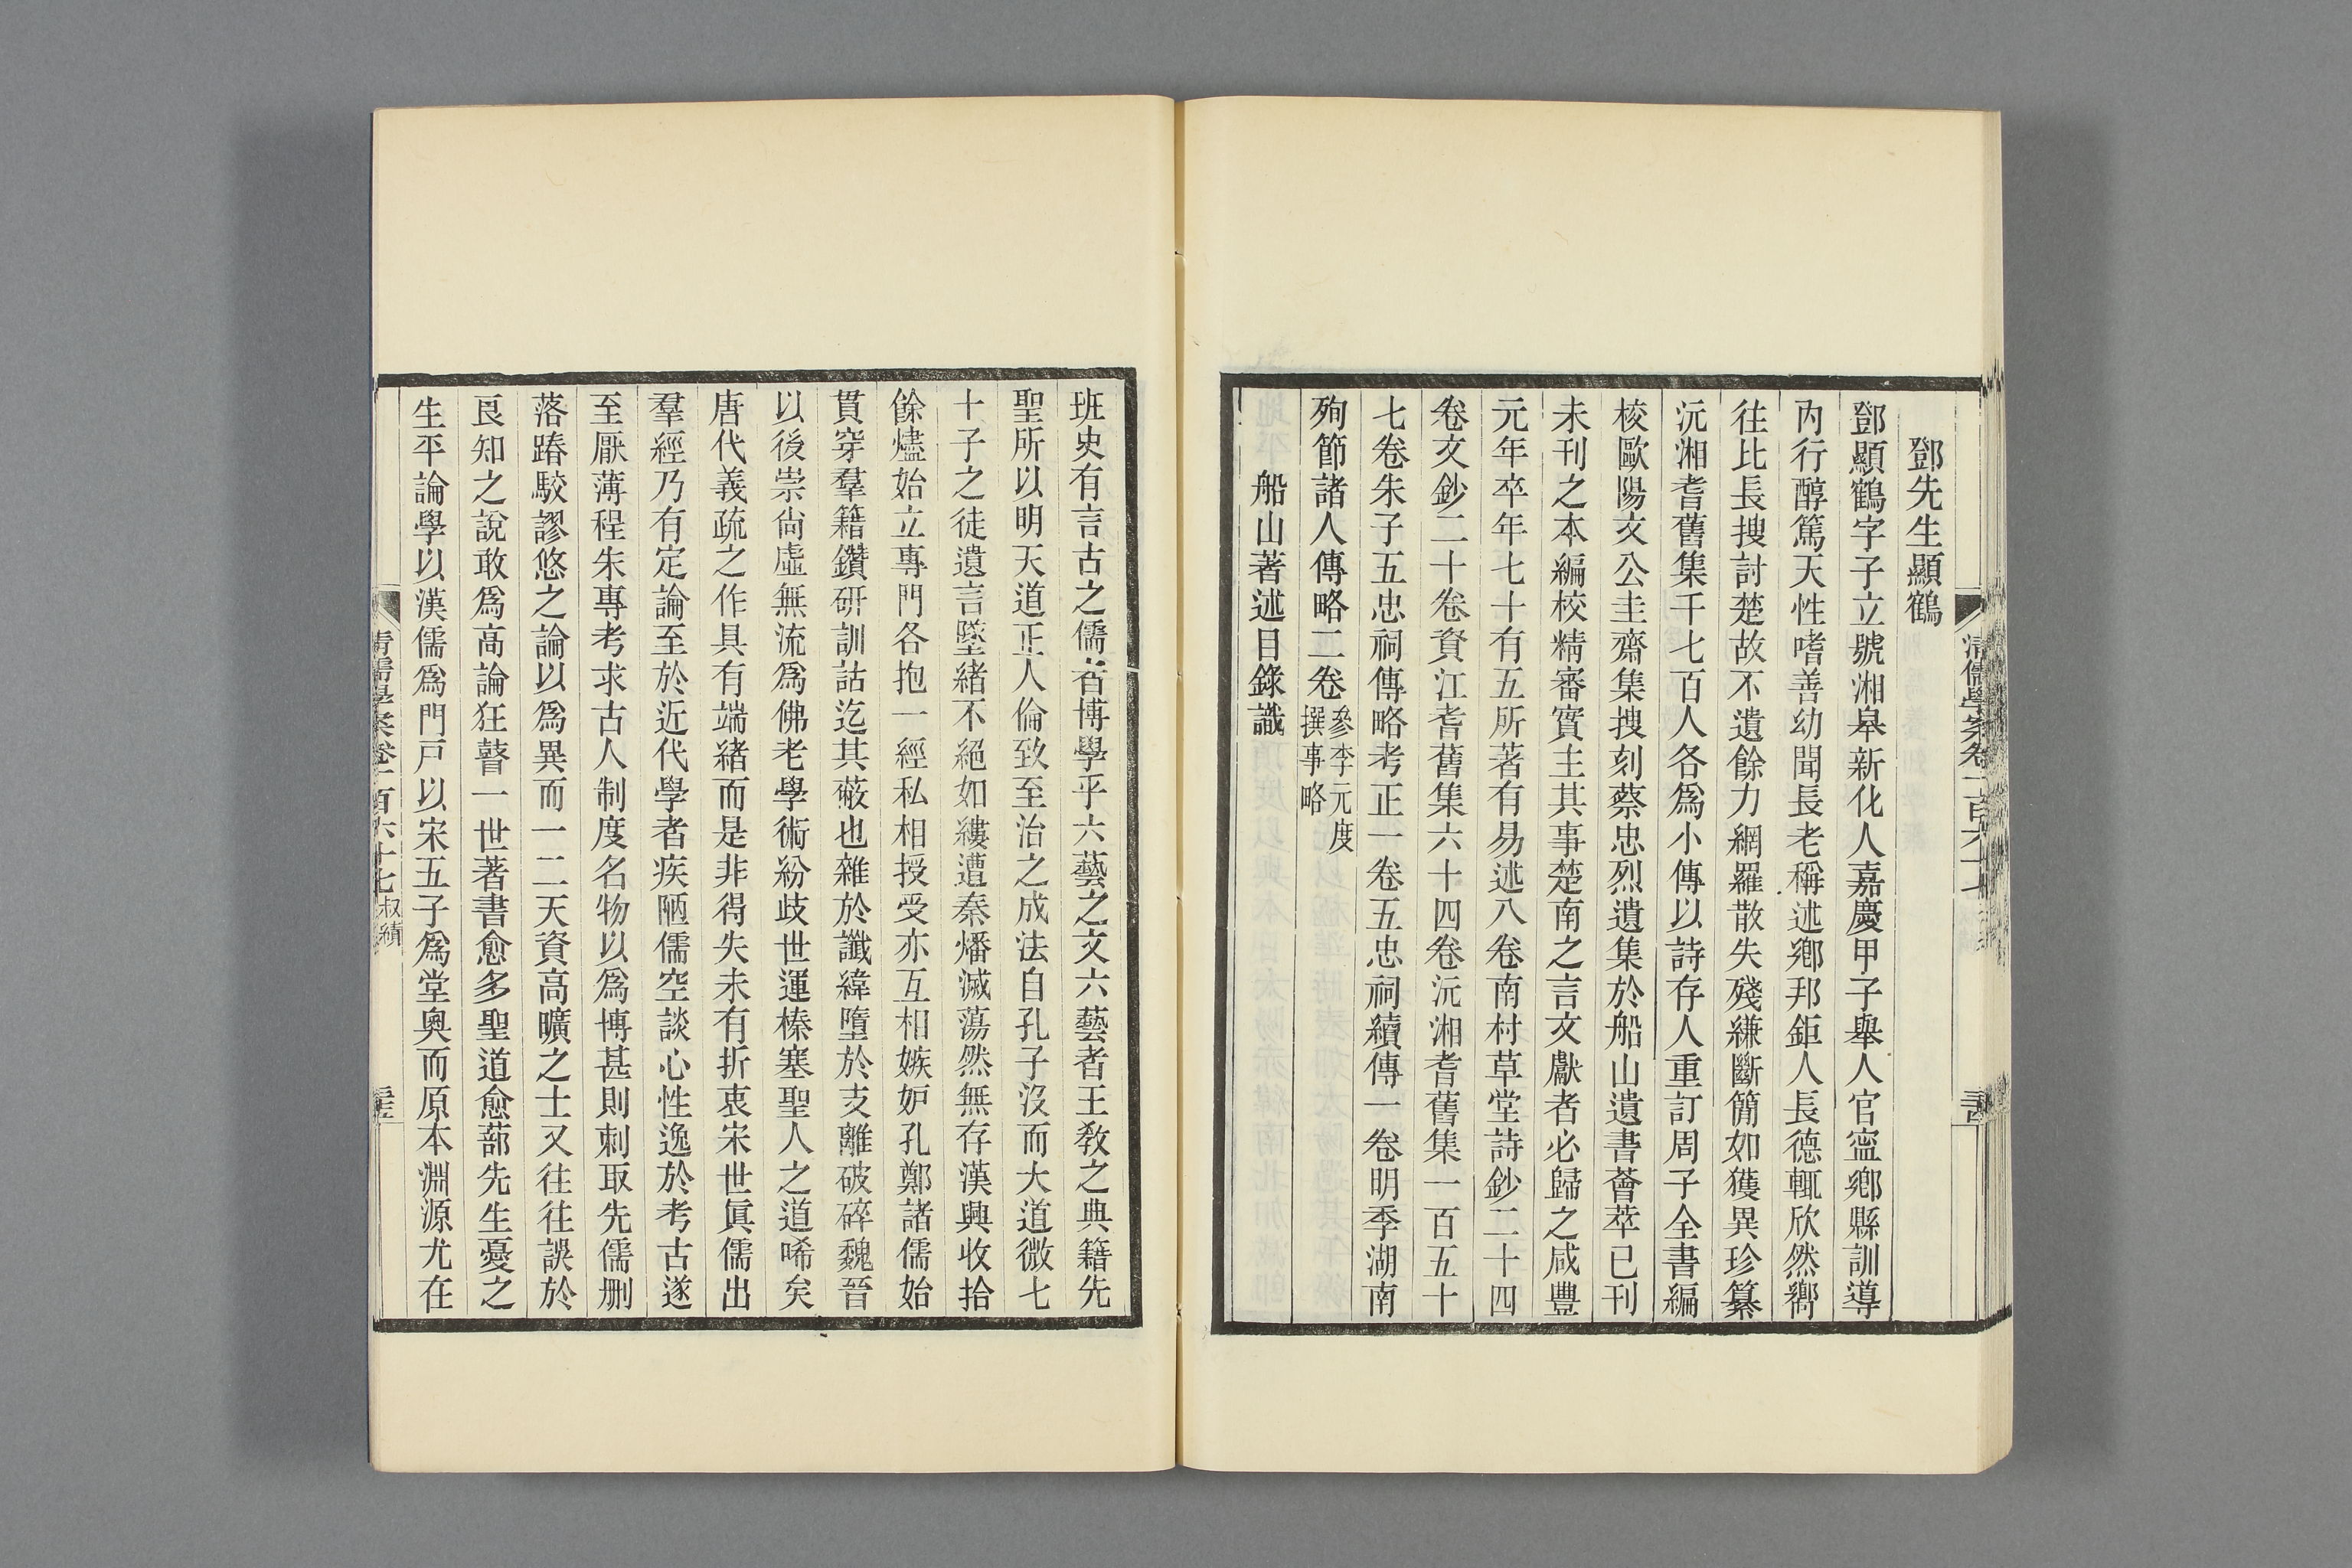 鄧先生顯鶴
鄧顯鶴字子立號湘皋新化人嘉慶甲子舉人官寍鄉縣訓導
內行醇篤天性嗜善幼聞長老稱述鄉邦鉅人長德輒欣然嚮
往比長搜討楚故不遺餘力網羅散失殘縑斷簡如獲異珍纂
沅湘耆舊集千七百人各爲小傳以詩存人重訂周子全書編
校歐陽文公圭齋集搜刻蔡忠烈遺集於船山遺書薈萃已刊
未刊之本編校精審實主其事楚南之言文獻者必歸之咸豐
元年卒年七十有五所著有易述八卷南村草堂詩鈔二十四
卷文鈔二十卷資江耆舊集六十四卷沅湘耆舊集一百五十
七卷朱子五忠祠傳略考正一卷五忠祠續傳一卷明季湖南
殉節諸人傳略二卷參李元度撰事略
船山著述目錄識
班史有言古之儒者博學乎六藝之文六藝者王敎之典籍先
聖所以明天道正人倫致至治之成法自孔子沒而大道微七
十子之徒遺言墜緒不絕如縷遭秦燔滅蕩然無存漢興收拾
餘燼始立專門各抱一經私相授受亦互相嫉妒孔鄭諸儒始
貫穿羣籍鑽研訓詁迄其蔽也雜於讖緯墮於支離破碎魏晉
以後崇尙虛無流爲佛老學術紛歧世運榛塞聖人之道唏矣
唐代義疏之作具有端緒而是非得失未有折衷宋世眞儒出
羣經乃有定論至於近代學者疾陋儒空談心性逸於考古遂
至厭薄程朱專考求古人制度名物以爲博甚則刺取先儒刪
落踳駮謬悠之論以爲異而一二天資高曠之士又往往誤於
良知之說敢爲高論狂瞽一世著書愈多聖道愈蔀先生憂之
生平論學以漢儒爲門戶以宋五子爲堂奧而原本淵源尤在
清儒學案卷一百六十七 叔績